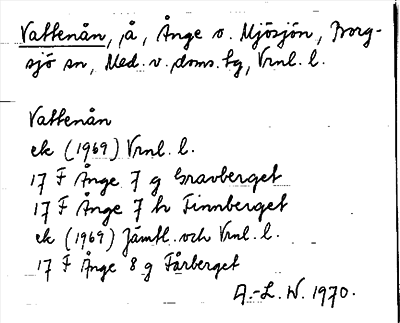 Vattenån, å, Ånge o. Mjösjön, Borg-
sjö sn, Med. v. doms. tg, Vrnl. l.
Vattenån
ek (1969) Vrnl. l.
17 F Ånge 7 g Gravberget
17 F Ånge 7 h Finnberget
ek (1969) Jämtl. och Vrnl. l.
17 F Ånge 8 g Fårberget
A.-L. W. 1970.